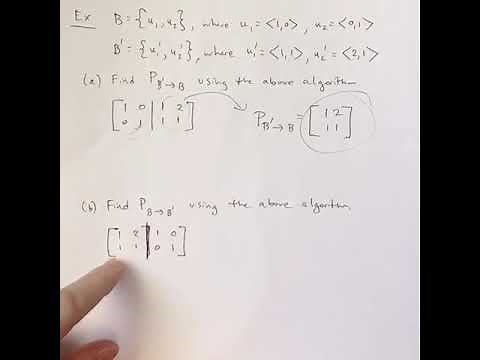 Ex B = {u₁, u₂}, where u₁ = <1,0>, u₂ = <0,1>
B' = {u₁', u₂'}, where u₁' = <1,1>, u₂' = <2,1>
(a) Find P_B'→B using the above algorithm
[1 0 | 1 2
0 1 | 1 1] P_B'→B = [1 2
1 1]
(b) Find P_B→B' using the above algorithm.
[1 2 | 1 0
1 1 | 0 1]